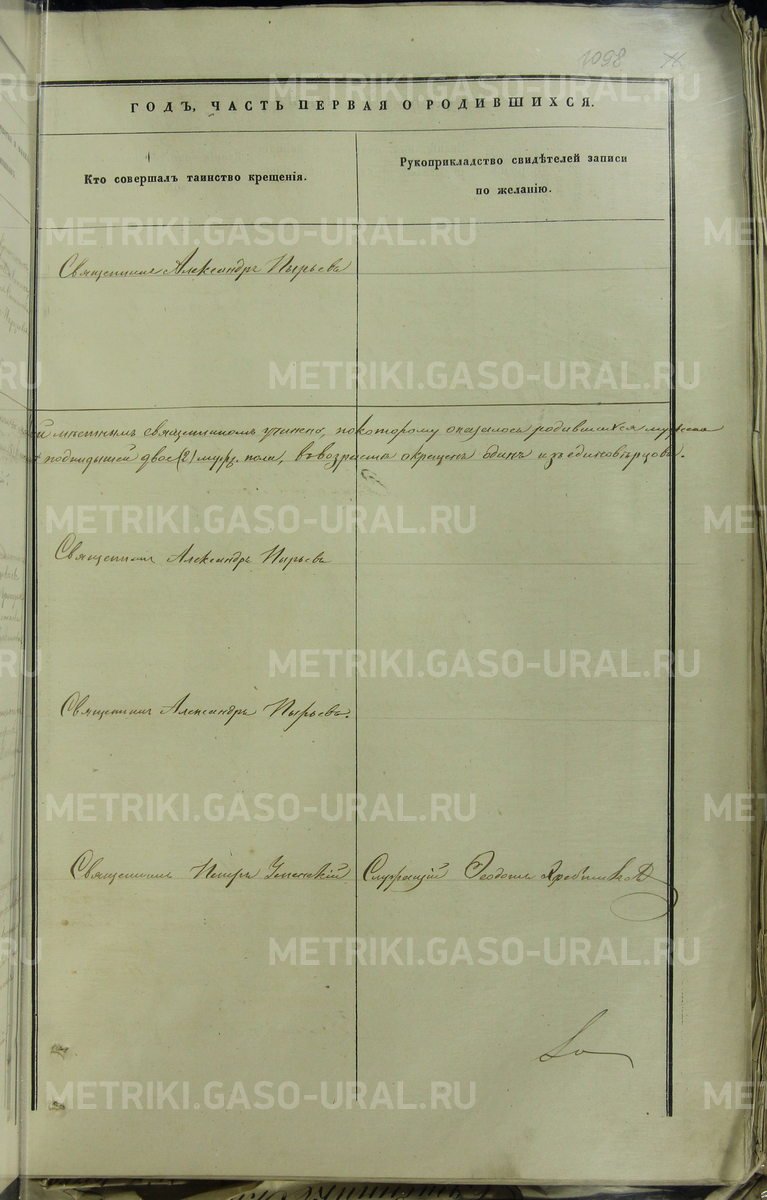 1098
ГОДЪ, ЧАСТЬ ПЕРВАЯ О РОДИВШИХСЯ.
Кто совершалъ таинство крещенія.
Рукоприкладство свидѣтелей записи
по желанію.
Священникъ Александръ Пырьевъ
мѣстнымъ священникомъ учинено, по которому оказалось родившихся
подкидышей двое (2) муж. пола, въ возраста окрещенъ одинъ изъ единовѣрцовъ.
Священникъ Александръ Пырьевъ
Священникъ Александръ Пырьевъ.
Священникъ Петръ Успенскій
Служащій Ѳеодотъ
METRIKI.GASO-URAL.RU
METRIKI.GASO-URAL.RU
METRIKI.GASO-URAL.RU
METRIKI.GASO-URAL.RU
METRIKI.GASO-URAL.RU
METRIKI.GASO-URAL.RU
METRIKI.GASO-URAL.RU
METRIKI.GASO-URAL.RU